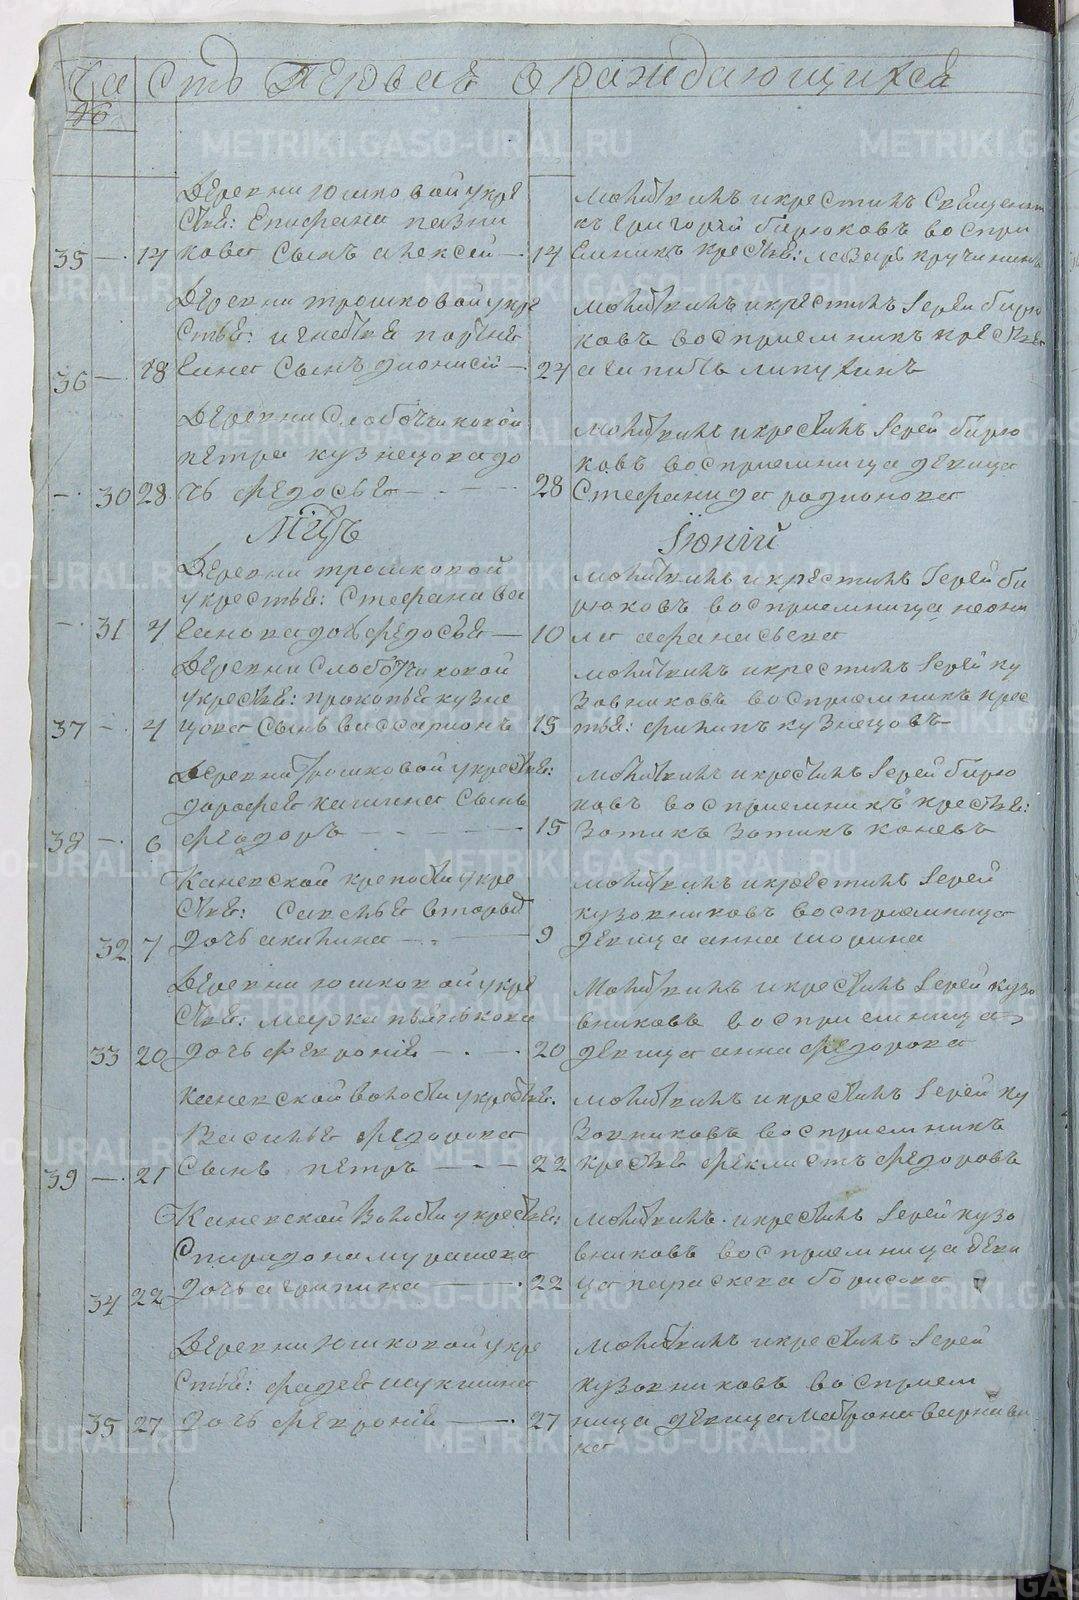 Часть первая о раждающихся
46
Деревни Юшковой у кре
стья: Епифана пазни
35 — 14 кова сынъ алексей — 14
молитвилъ и крестилъ Священни
къ Григорий Бирюковъ воспри
емникъ крестья: лазарь кручининъ
Деревни трошковой у кре
стья: игнатья
36 — 18 сынъ дионисий — 24
молитвилъ и крестилъ Iерей бирю
ковъ восприемникъ крестья
агипитъ липухинъ
Деревни Слободчиковой
петра кузнецова до
— 30 28 чь федосья — 28
молитвилъ и крестилъ Iерей бирю
ковъ восприемница девица
Стефанида радионова
Мцъ Iюнiй
Деревни трошковой
у крестья: Стефана ва
— 31 4 дочь федосья — 10
молитвилъ и крестилъ Iерей би
рюковъ восприемница неони
ла афанасьева
Деревни слободчиковой
у крестья: прокопья кузне
37 — 4 цова сынъ виссарионъ 15
молитвилъ и крестилъ Iерей ку
зовниковъ восприемникъ крес
тья: филипъ кузнецовъ
Деревни Трошковой у крестья:
дорофея кашина сынъ
38 — 6 феодоръ — 15
молитвилъ и крестилъ Iерей бирю
ковъ восприемникъ крестья:
Зотикъ Зотикъ коневъ
Каменской крепости у кре
стья: савелья
32 7 дочь акилина — 9
молитвилъ и крестилъ Iерей
кузовниковъ восприемница
девица анна шорина
Деревни юшковой у кре
стья: марка пьянкова
33 20 дочь феврониe — 20
молитвилъ и крестилъ Iерей кузо
вниковъ восприемница
девица анна федорова
каменской волости у крестья:
Василья федорова
39 — 21 сынъ петръ — 22
молитвилъ и крестилъ Iерей ку
зовниковъ восприемникъ
крестья феклистъ федоровъ
Каменской волости у крестья:
Спиридона мурашева
34 22 дочь агрипина — 22
молитвилъ и крестилъ Iерей кузо
вниковъ восприемница деви
ца параскева борисова
Деревни юшковой у кре
стья: фадея шукшина
35 27 дочь феврониe — 27
молитвилъ и крестилъ Iерей
кузовниковъ восприем
ница девица матрона варнави
на
METRIKI.GASO-URAL.RU